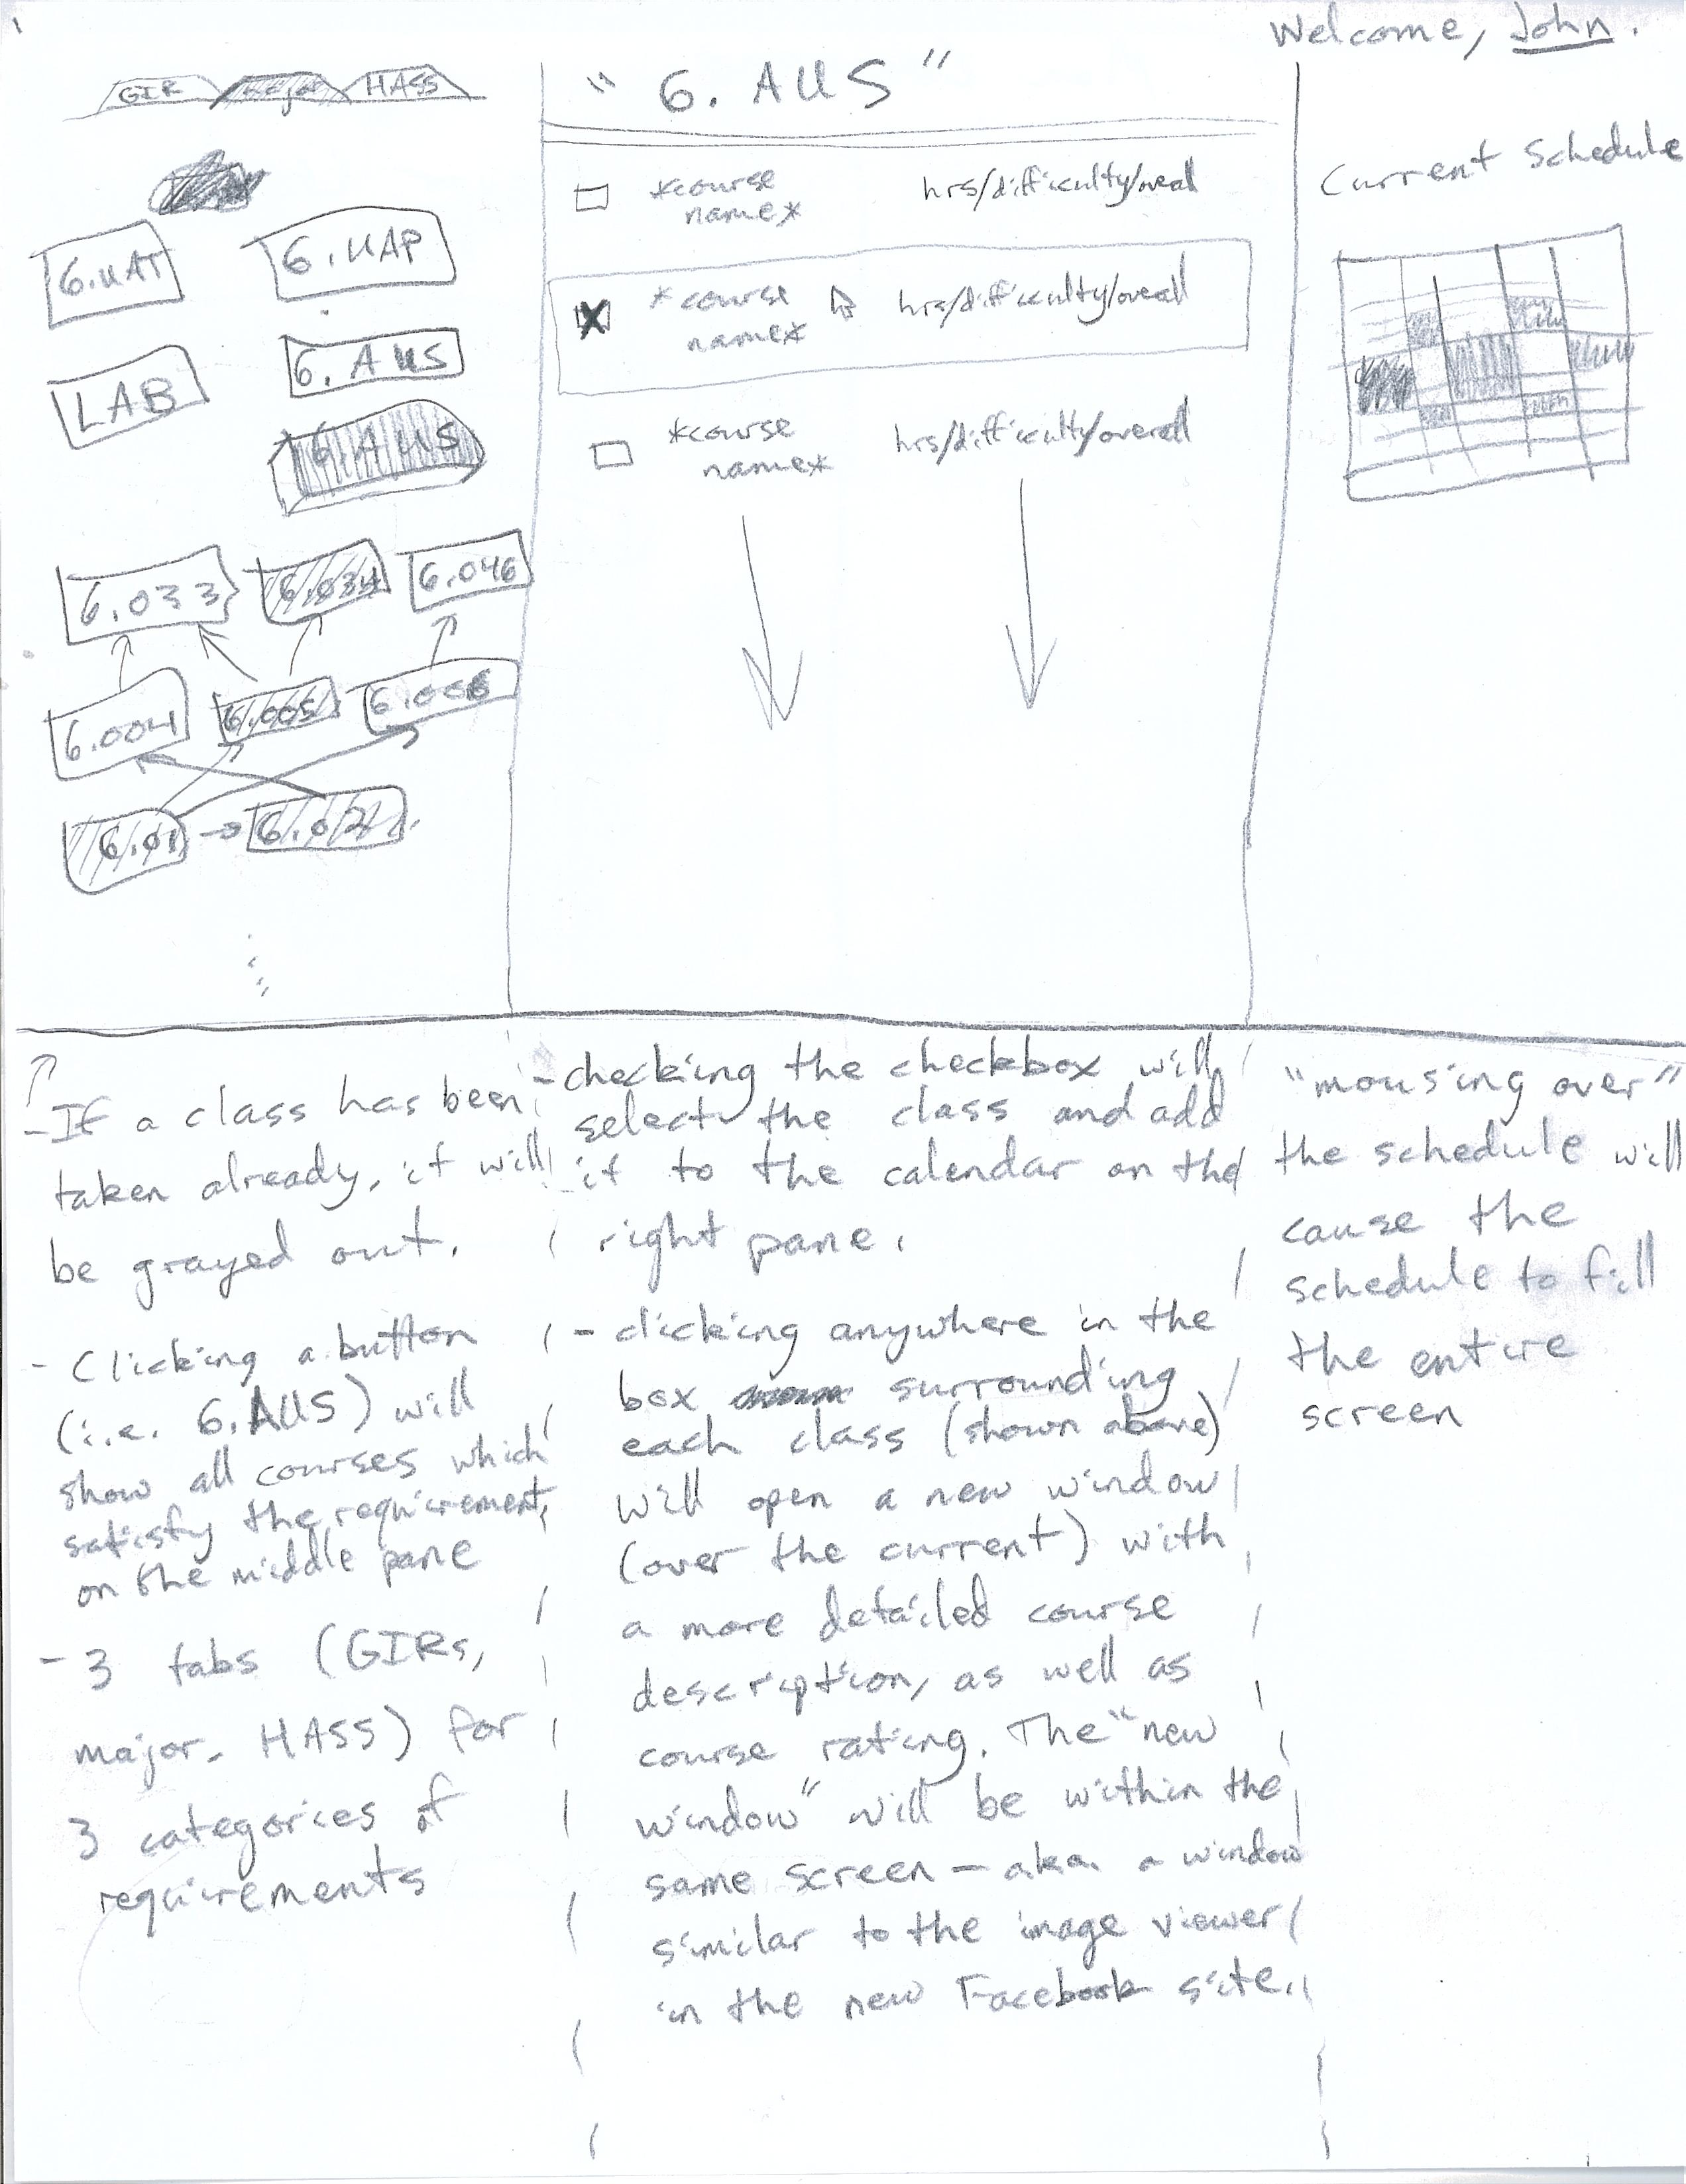 Welcome, John.
GIR Major HASS
6.UAT 6.UAP
LAB 6.AUS
6.AUS
6.033 6.034 6.046
6.004 6.005 6.006
6.01 → 6.02
"6.AUS"
*course hrs/difficulty/overall
name*
*course hrs/difficulty/overall
name*
*course hrs/difficulty/overall
name*
Current Schedule
-If a class has been
taken already, it will
be grayed out.
- Clicking a button
(i.e. 6.AUS) will
show all courses which
satisfy the requirement,
on the middle pane
- 3 tabs (GIRs,
major, HASS) for
3 categories of
requirements
- checking the checkbox will
select the class and add
it to the calendar on the
right pane.
- clicking anywhere in the
box surrounding
each class (shown above)
will open a new window
(over the current) with
a more detailed course
description, as well as
course rating. The "new
window" will be within the
same screen - aka. a window
similar to the image viewer
in the new Facebook site.
"mousing over"
the schedule will
cause the
schedule to fill
the entire
screen